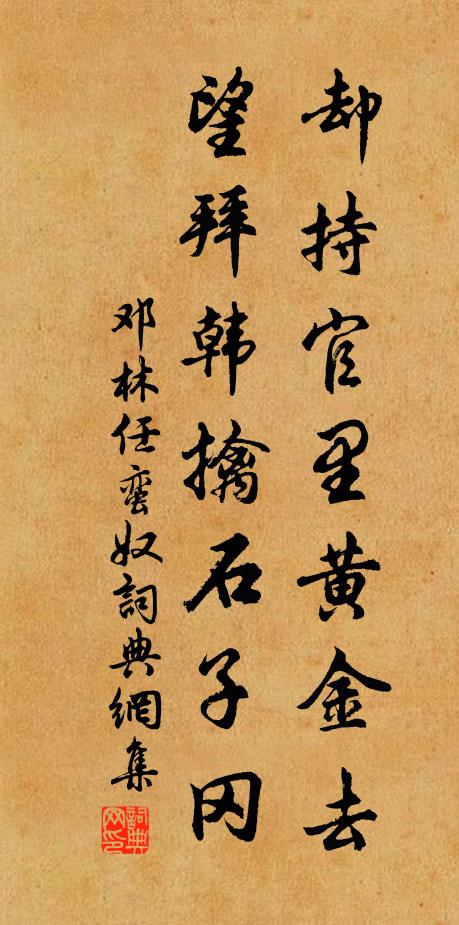 却持官里黄金去
望拜韩擒石子冈
邓林任蛮奴詞典網集
詞典网印